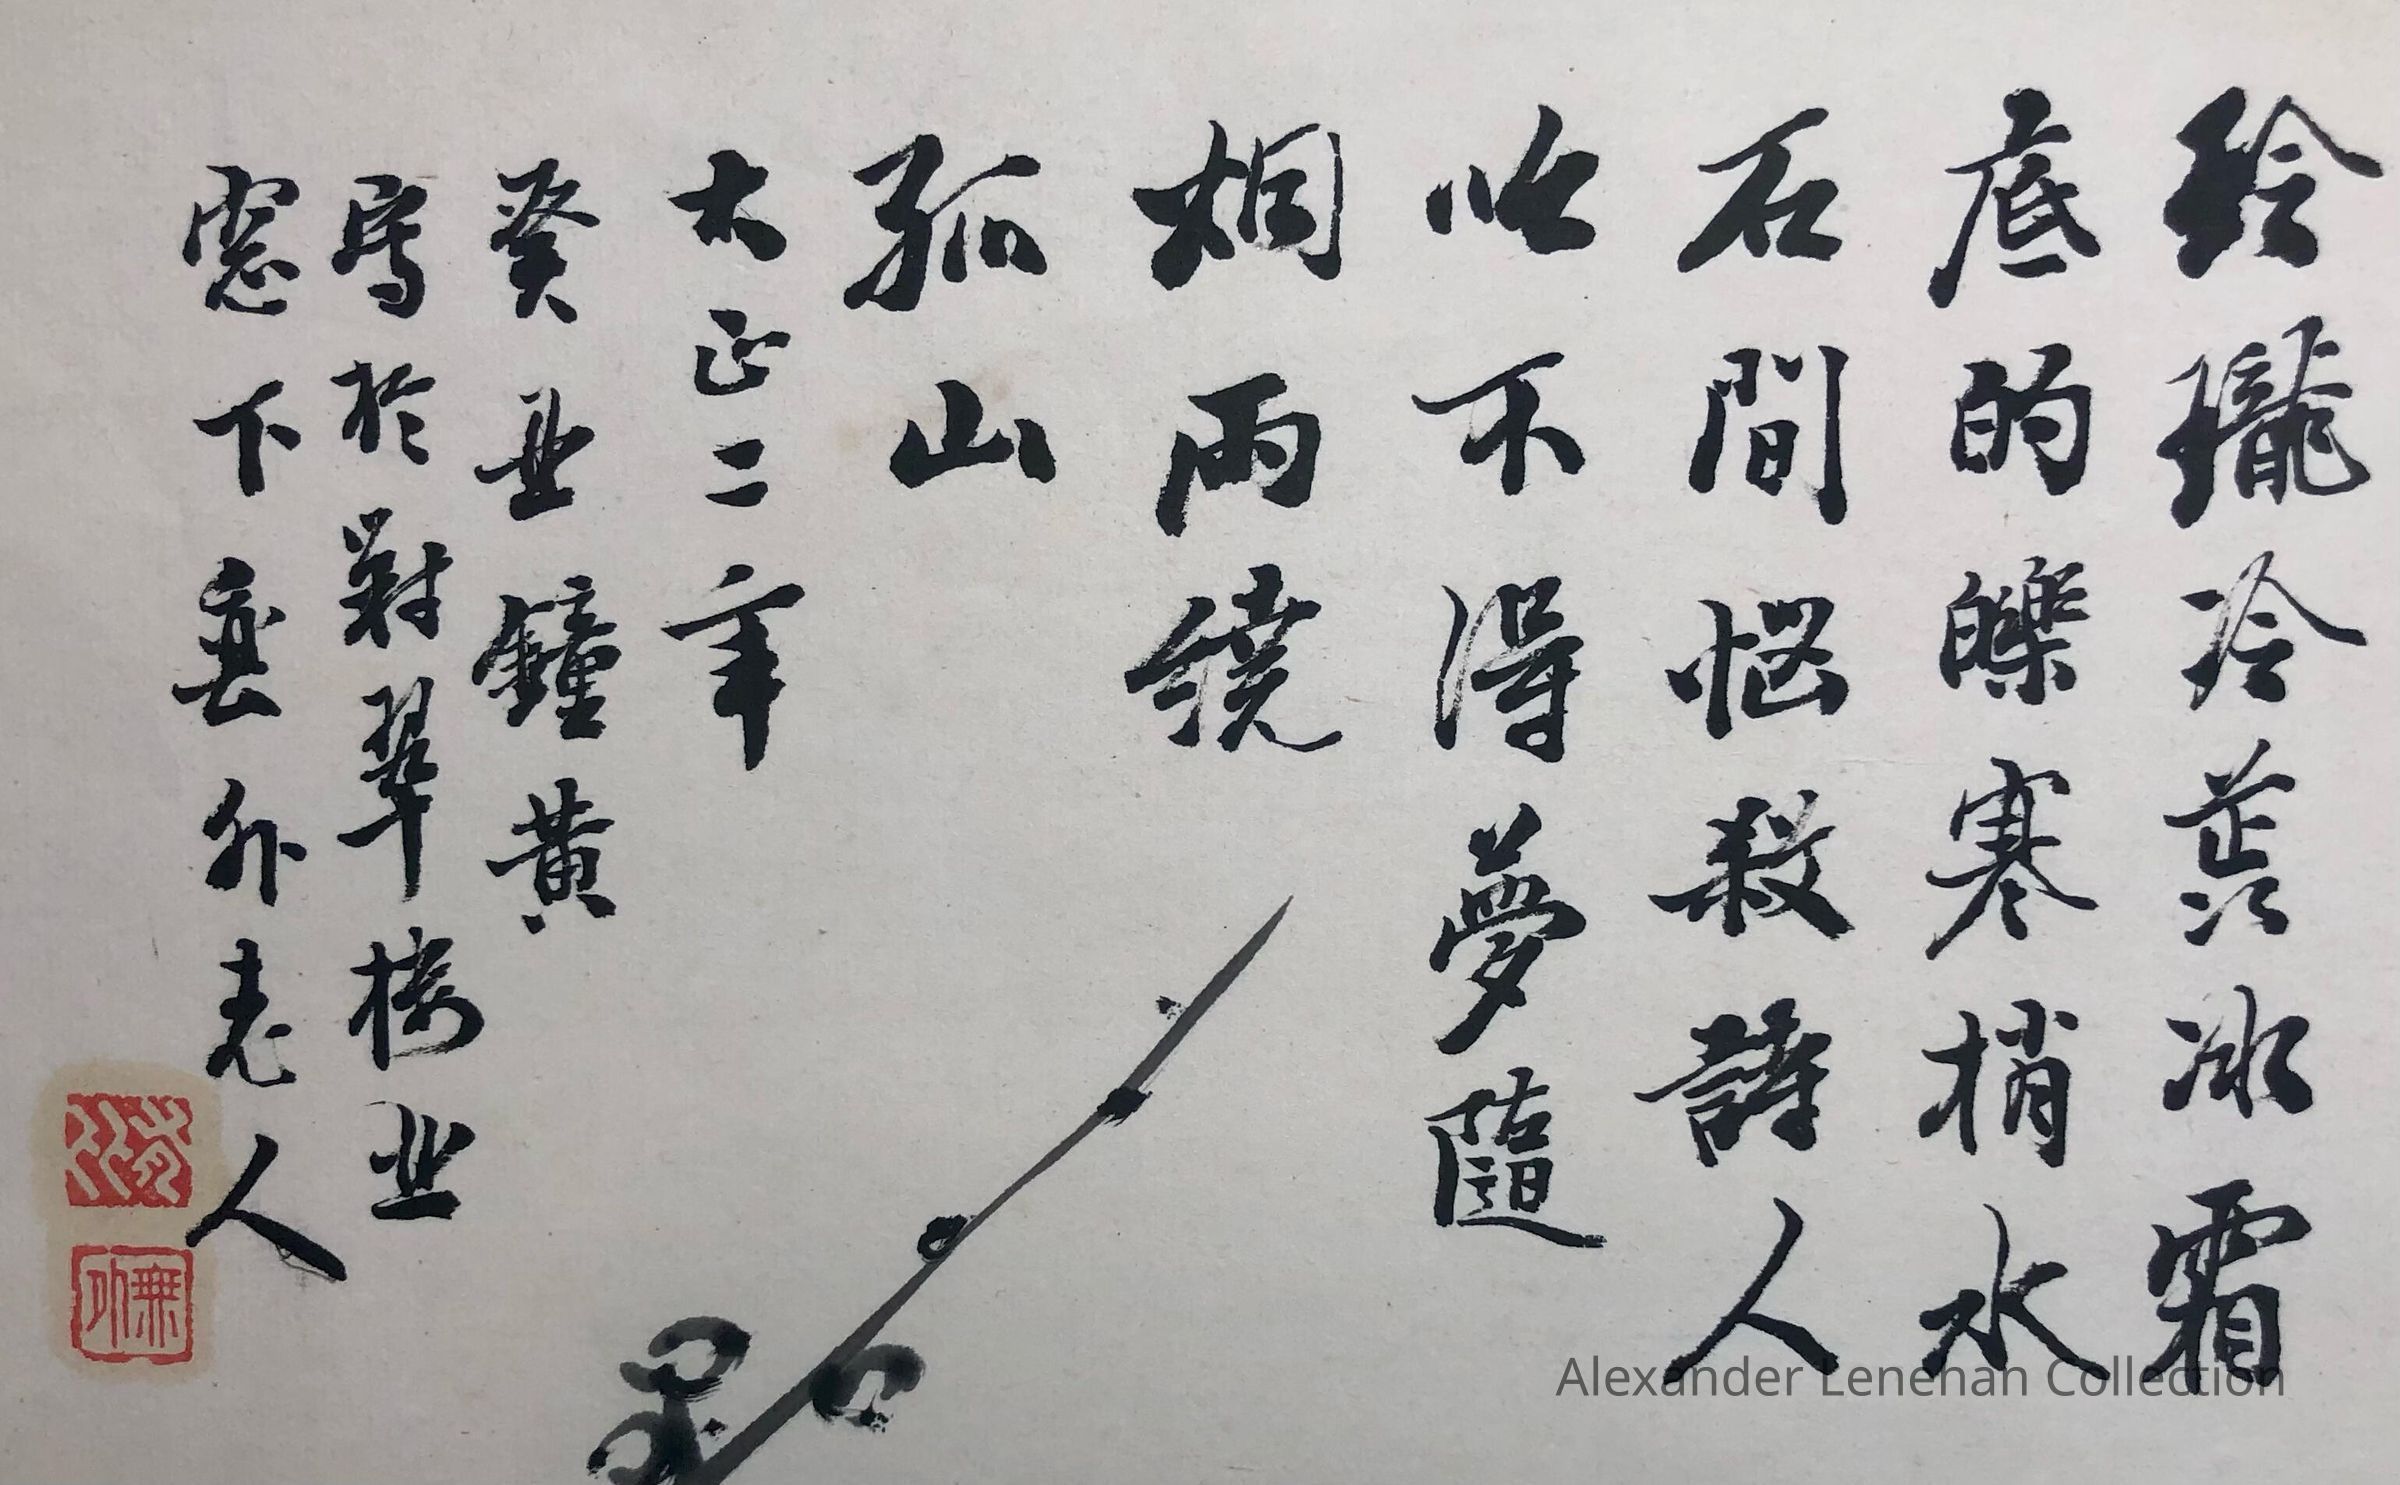 玲瓏冷蕊冰霜
底的皪寒梢水
石間惱殺詩人
吟不得夢隨
烟雨繞
孤山
大正二年
癸丑鐘黄
寫於對翠楼北
窓下無外老人
無外
Alexander Lenehan Collection